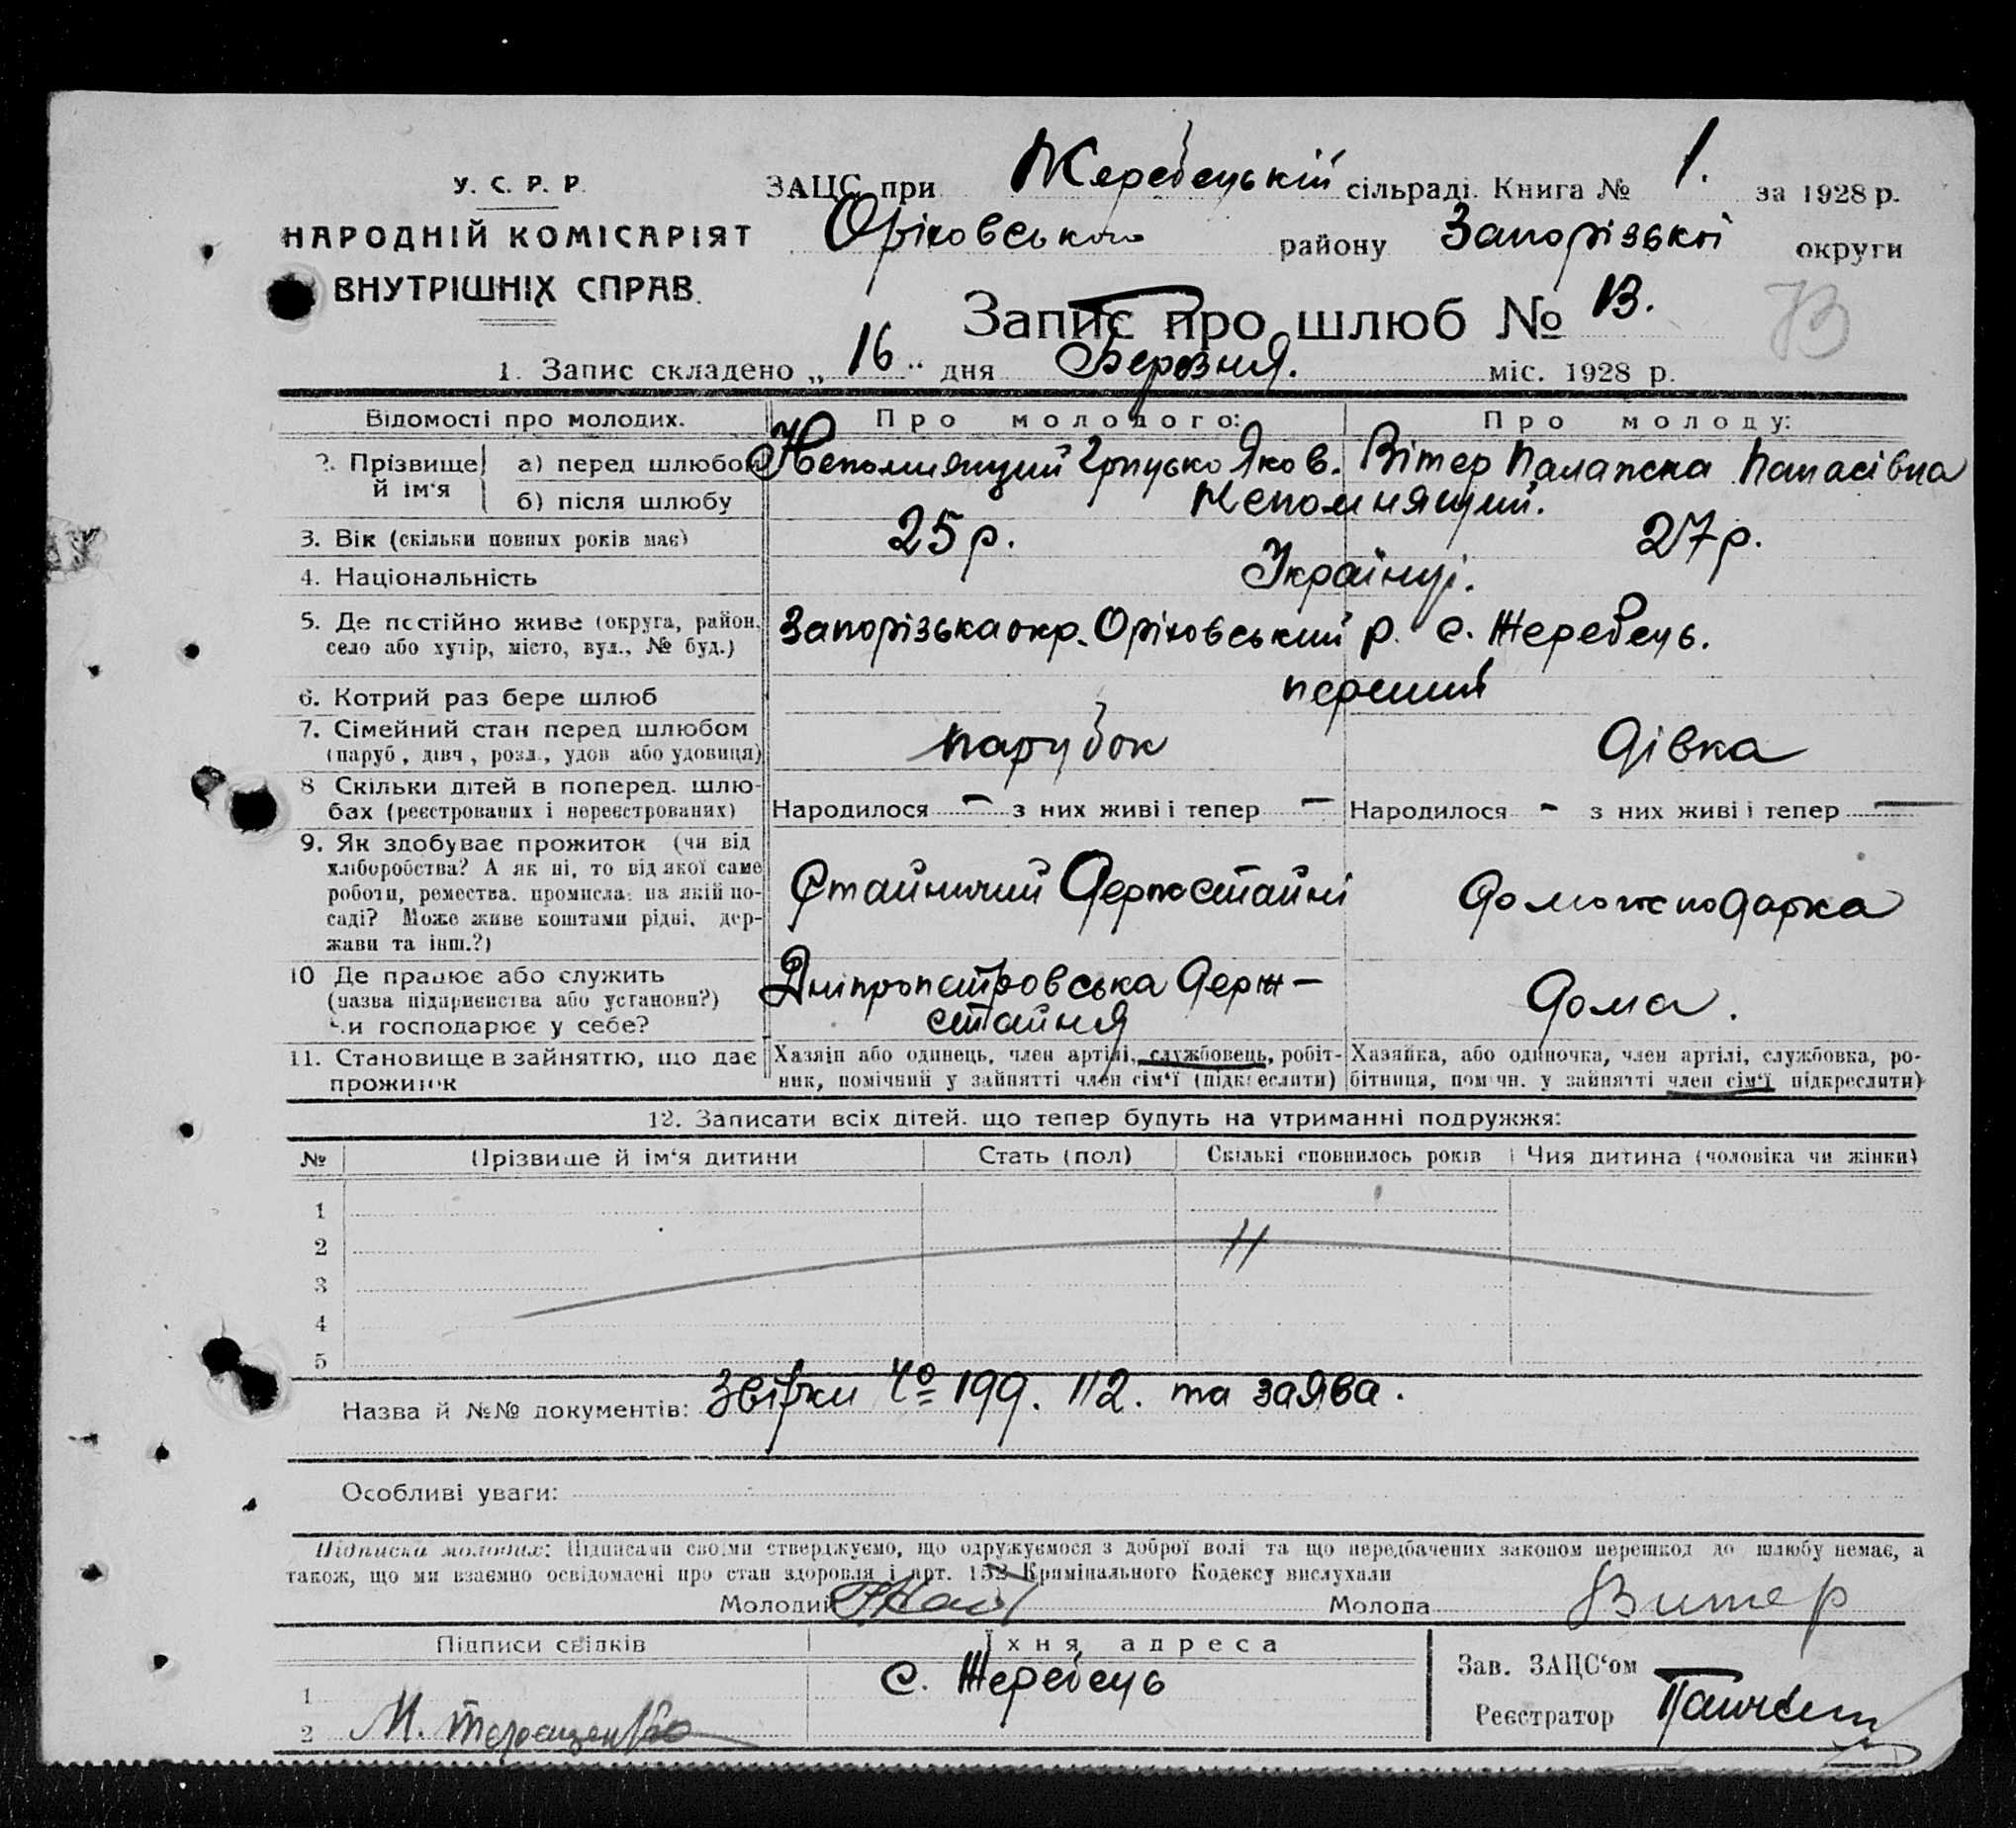 У. С. Р. Р.
НАРОДНІЙ КОМІСАРІЯТ
ВНУТРІШНІХ СПРАВ.
ЗАЦС при Жеребецькій сільраді. Книга № 1. за 1928 р.
Оріховського району Запорізької округи
Запис про шлюб № 13.
13
1. Запис складено „ 16 “ дня Березня. міс. 1928 р.
Відомості про молодих. Про молодого: Про молоду:
2. Прізвище й ім‘я
а) перед шлюбом Непомнящий Грицько Яков. Вітер Палажка Панасівна
б) після шлюбу Непомнящий.
3. Вік (скільки повних років має) 25 р. 27 р.
4. Національність Українці.
5. Де постійно живе (округа, район, село або хутір, місто, вул., № буд.) Запорізька окр. Оріховський р. с. Жеребець.
6. Котрий раз бере шлюб перший
7. Сімейний стан перед шлюбом (паруб, дівч, розл., удов або удовиця) парубок дівка
8 Скільки дітей в поперед. шлюбах (реєстрованих і нереєстрованих) Народилося — з них живі і тепер — Народилося - з них живі і тепер —
9. Як здобуває прожиток (чи від хліборобства? А як ні, то від якої саме роботи, ремества, промисла: на якій посаді? Може живе коштами рідні, держави та інш.?) Стайничий Держстайні Домогосподарка
10 Де працює або служить (назва підприємства або установи?) Чи господарює у себе? Дніпропетровська Держ-стайня дома.
11. Становище в зайняттю, що дає прожиток
Хазяїн або одинець, член артілі, службовець, робіт-
ник, помічний у зайнятті член сім‘ї (підкреслити)
Хазяйка, або одиночка, член артілі, службовка, ро-
бітниця, помічн. у зайнятті член сім‘ї підкреслити)
12. Записати всіх дітей. що тепер будуть на утриманні подружжя:
№ Прізвище й ім‘я дитини Стать (пол) Скількі сповнилось років Чия дитина (чоловіка чи жінки)
1
2
3
4
5
Назва й №№ документів: Звірки № 199. 112. та заява.
Особливі уваги:
Підписка молодих: Підписами своїми стверджуємо, що одружуємося з доброї волі та що передбачених законом перешкод до шлюбу немає, а
також, що ми взаємно освідомлені про стан здоровля і арт. 152 Кримінального Кодексу вислухали
Молодий Молода Витер
Підписи свідків Їхня адреса
Зав. ЗАЦС‘ом
1 с. Жеребець
Реєстратор
2 М. Терещенко